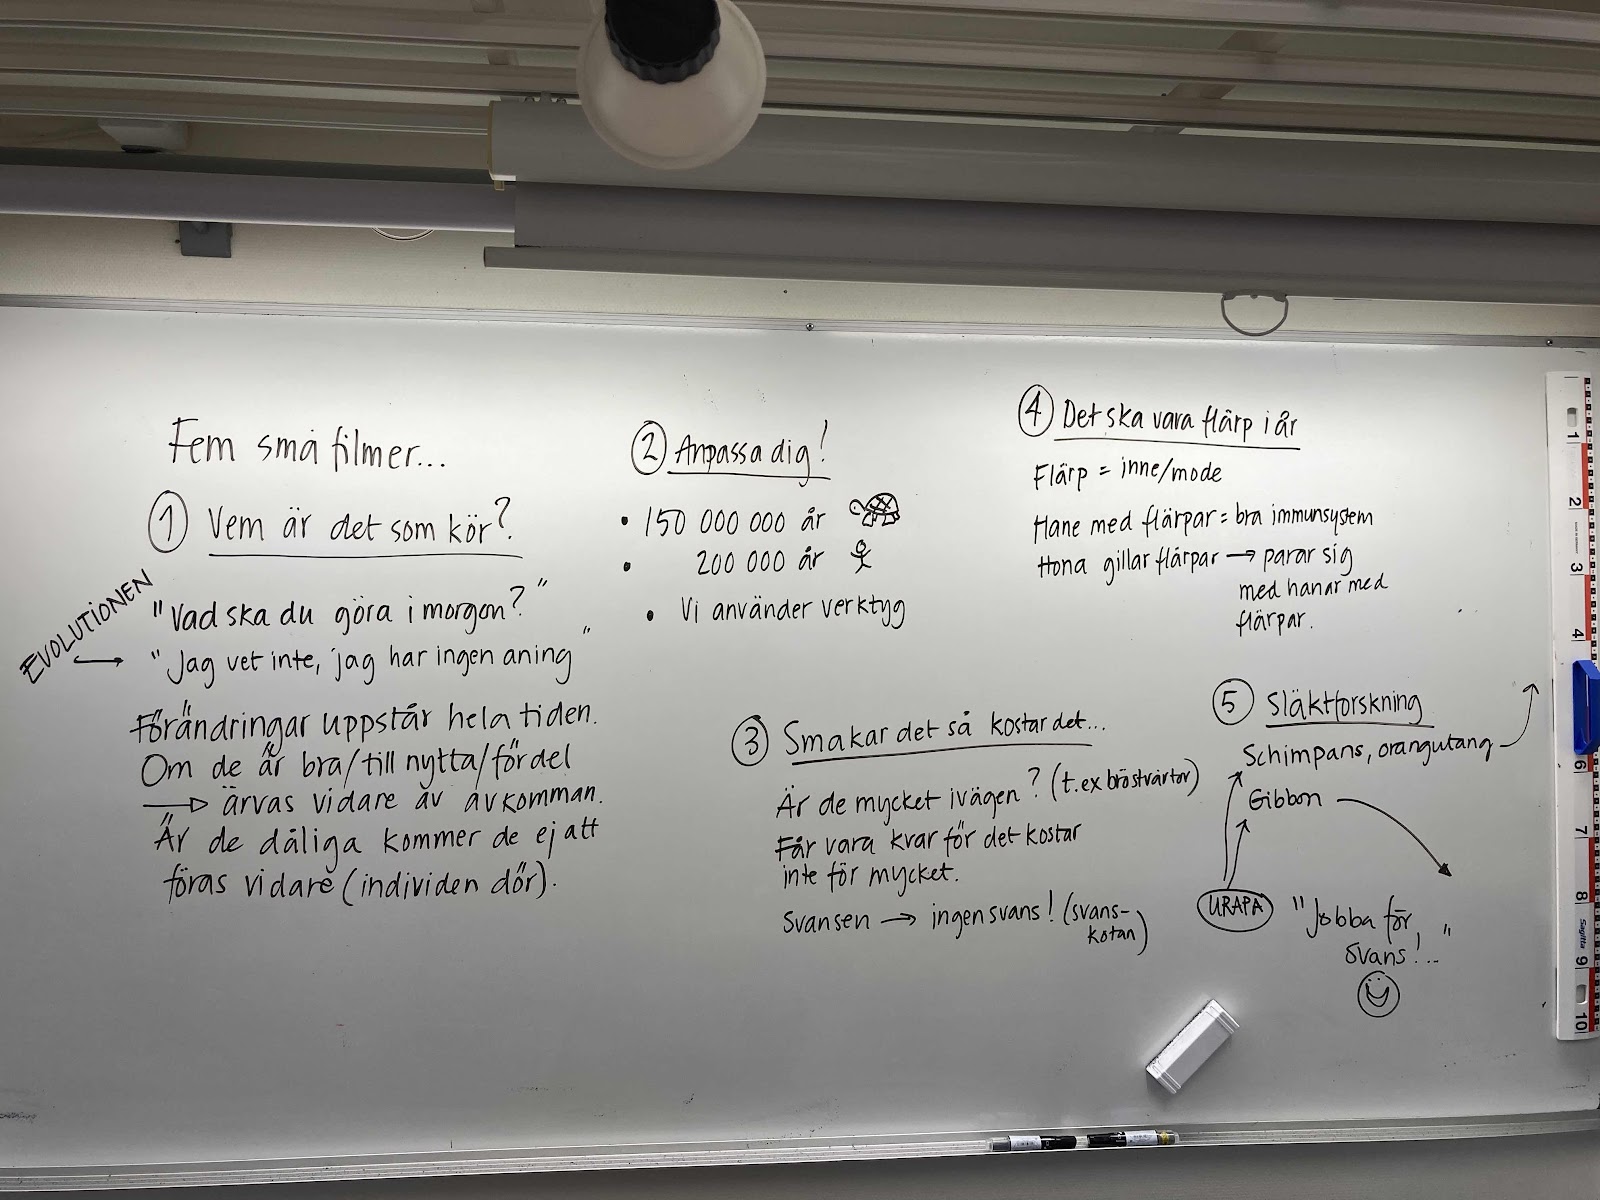 Fem små filmer...
① Vem är det som kör?
EVOLUTIONEN
"Vad ska du göra i morgon?"
"Jag vet inte, jag har ingen aning"
Förändringar uppstår hela tiden.
Om de är bra/till nytta/fördel
→ ärvas vidare av avkomman.
Är de dåliga kommer de ej att
föras vidare (individen dör).
② Anpassa dig!
• 150 000 000 år
• 200 000 år
• Vi använder verktyg
③ Smakar det så kostar det...
Är de mycket ivägen? (t.ex bröstvårtor)
Får vara kvar för det kostar
inte för mycket.
Svansen → ingen svans! (svans-
kotan)
④ Det ska vara flärp i år
Flärp = inne/mode
Hane med flärpar = bra immunsystem
Hona gillar flärpar → parar sig
med hanar med
flärpar.
⑤ Släktforskning
Schimpans, orangutang
Gibbon
URAPA
"Jobba för
svans!..."
1
2
3
4
6
7
8
Sagitta
9
10